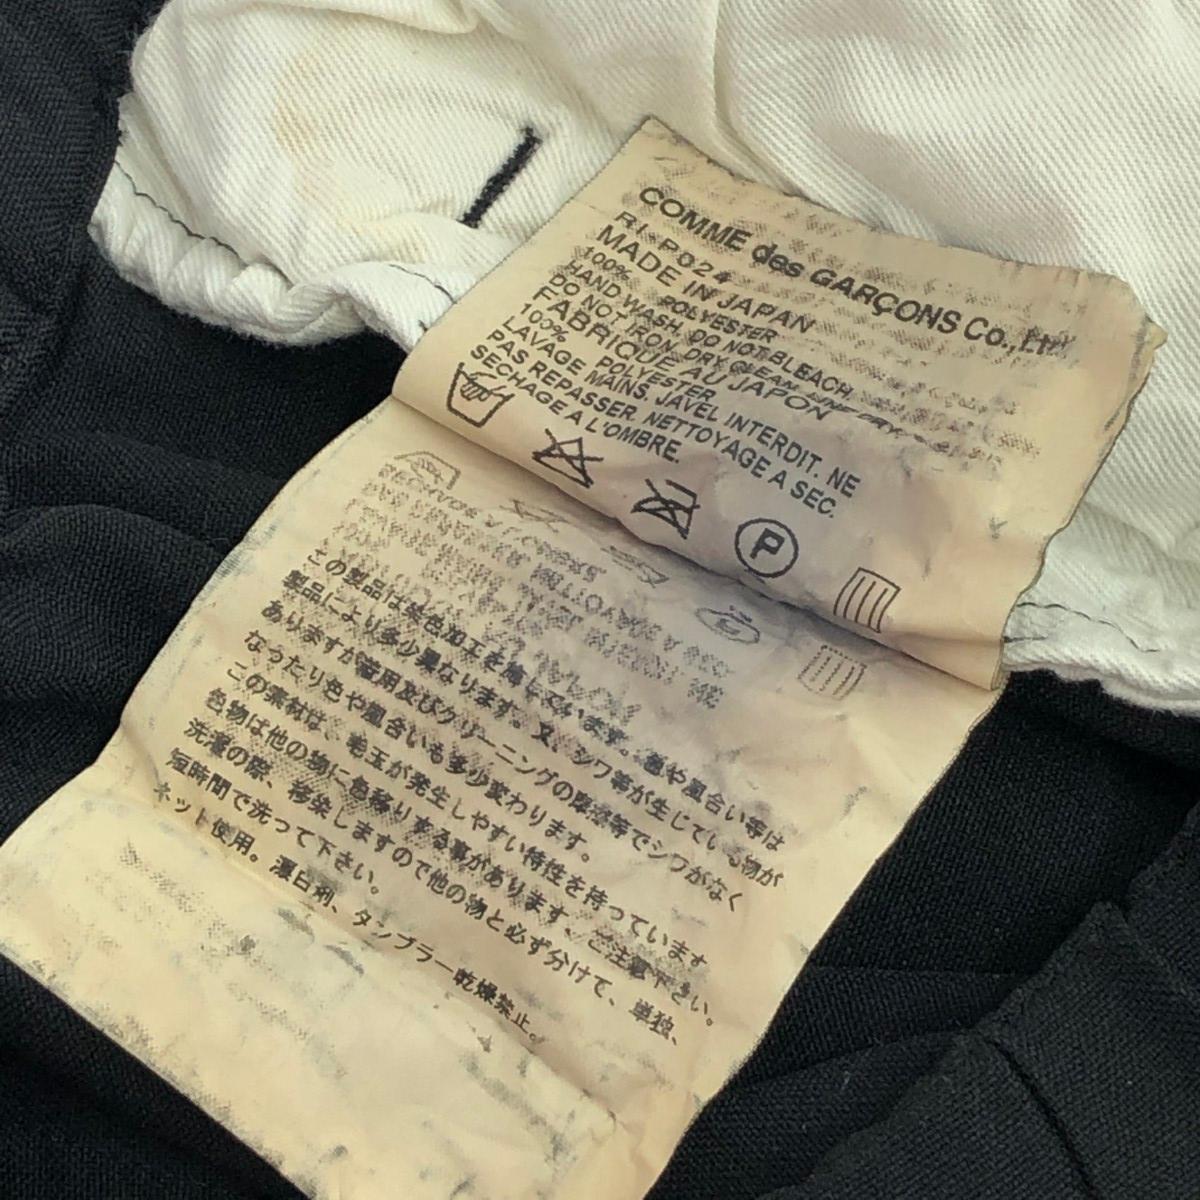 COMME des GARÇONS Co., Ltd.
RI-P024
MADE IN JAPAN
100% POLYESTER
HAND WASH, DO NOT BLEACH,
DO NOT IRON, DRY CLEAN, LINE DRY.
FABRIQUE AU JAPON
100% POLYESTER
LAVAGE MAINS. JAVEL INTERDIT. NE
PAS REPASSER. NETTOYAGE A SEC.
SECHAGE A L'OMBRE.
P
この製品は染色加工を施しています。色や風合い等は
製品により多少異なります。又、シワ等が生じている物が
ありますが着用及びクリーニングの摩擦等でシワがなく
なったり色や風合いも多少変わります。
この素材は、毛玉が発生しやすい特性を持っています
色物は他の物に色移りする事があります、ご注意下さい。
洗濯の際、移染しますので他の物と必ず分けて、単独、
短時間で洗って下さい。
ネット使用。漂白剤、タンブラー乾燥禁止。